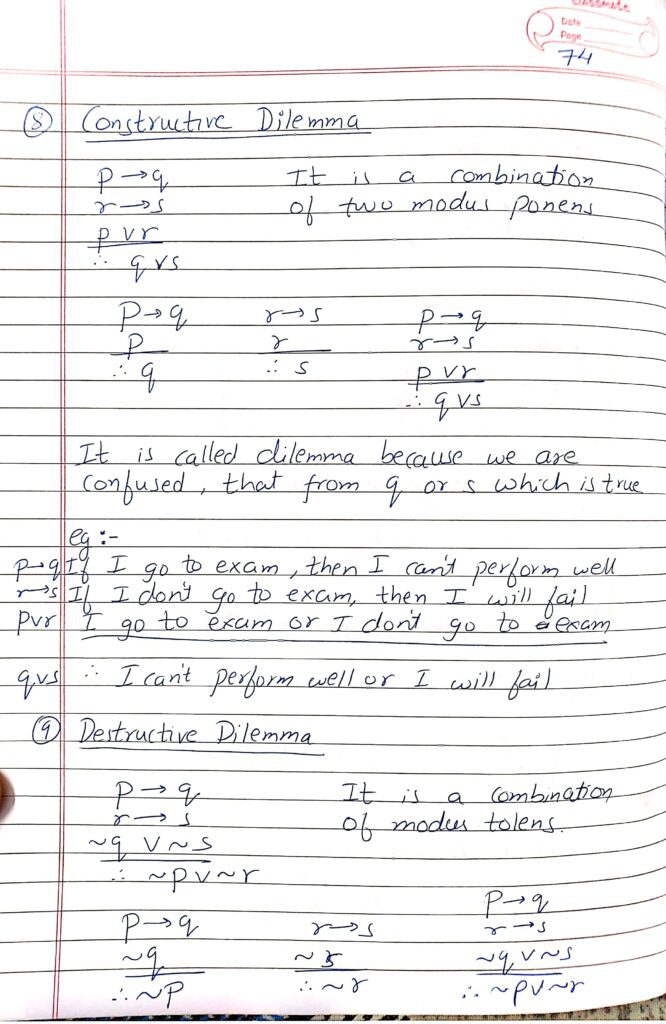 classmate
Date
Page
74
⑧ Constructive Dilemma
p → q It is a combination
r → s of two modus ponens
p v r
∴ q v s
p → q r → s p → q
p r r → s
∴ q ∴ s p v r
∴ q v s
It is called dilemma because we are
confused, that from q or s which is true
eg :-
p→q If I go to exam, then I can't perform well
r→s If I don't go to exam, then I will fail
p v r I go to exam or I don't go to exam
q v s ∴ I can't perform well or I will fail
⑨ Destructive Dilemma
p → q It is a combination
r → s of modus tolens.
~q v ~s
∴ ~p v ~r
p → q
p → q r → s r → s
~q ~s ~q v ~s
∴ ~p ∴ ~r ∴ ~p v ~r